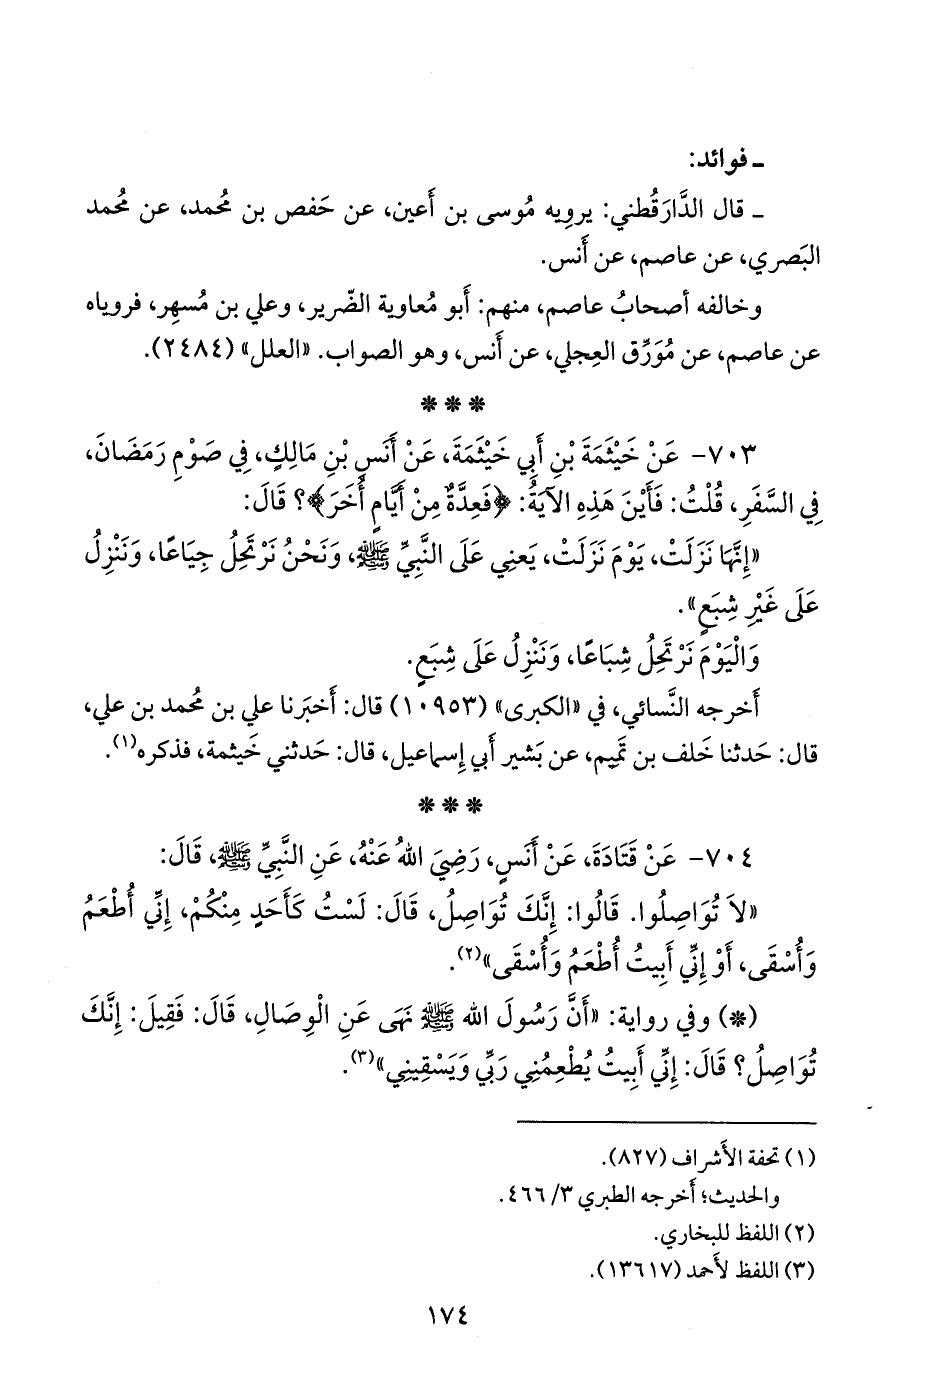 ـ فوائد:
ـ قال الدَّارَقُطني: يرويه مُوسى بن أَعين، عن حَفص بن مُحمد، عن مُحمد
البَصري، عن عاصم، عن أَنس.
وخالفه أصحابُ عاصم، منهم: أَبو مُعاوية الضَّرير، وعلي بن مُسهِر، فروياه
عن عاصم، عن مُوَرِّق العِجلي، عن أَنس، وهو الصواب. «العلل» (٢٤٨٤).
* * *
٧٠٣- عَنْ خَيْثَمَةَ بْنِ أَبِي خَيْثَمَةَ، عَنْ أَنَسِ بْنِ مَالِكٍ، فِي صَوْمِ رَمَضَانَ،
فِي السَّفَرِ، قُلْتُ: فَأَيْنَ هَذِهِ الآيَةُ: ﴿فَعِدَّةٌ مِنْ أَيَّامٍ أُخَرَ﴾؟ قَالَ:
«إِنَّهَا نَزَلَتْ، يَوْمَ نَزَلَتْ، يَعنِي عَلَى النَّبِيِّ ﷺ، وَنَحْنُ نَرْتَحِلُ جِيَاعًا، وَنَنْزِلُ
عَلَى غَيْرِ شِبَعٍ».
وَالْيَوْمَ نَرْتَحِلُ شِبَاعًا، وَنَنْزِلُ عَلَى شِبَعٍ.
أَخرجه النَّسائي، في «الكبرى» (١٠٩٥٣) قال: أَخبَرنا علي بن مُحمد بن علي،
قال: حَدثنا خَلف بن تَميم، عن بَشير أَبي إِسماعيل، قال: حَدثني خَيثمة، فذكره(١).
* * *
٧٠٤- عَنْ قَتَادَةَ، عَنْ أَنَسٍ، رَضِيَ اللهُ عَنْهُ، عَنِ النَّبِيِّ ﷺ، قَالَ:
«لاَ تُوَاصِلُوا. قَالُوا: إِنَّكَ تُوَاصِلُ، قَالَ: لَسْتُ كَأَحَدٍ مِنْكُمْ، إِنِّي أُطْعَمُ
وَأُسْقَى، أَوْ إِنِّي أَبِيتُ أُطْعَمُ وَأُسْقَى»(٢).
(*) وفي رواية: «أَنَّ رَسُولَ الله ﷺ نَهَى عَنِ الْوِصَالِ، قَالَ: فَقِيلَ: إِنَّكَ
تُوَاصِلُ؟ قَالَ: إِنِّي أَبِيتُ يُطْعِمُنِي رَبِّي وَيَسْقِينِي»(٣).
(١) تحفة الأَشراف (٨٢٧).
والحديث؛ أَخرجه الطبري ٣/ ٤٦٦.
(٢) اللفظ للبخاري.
(٣) اللفظ لأَحمد (١٣٦١٧).
١٧٤